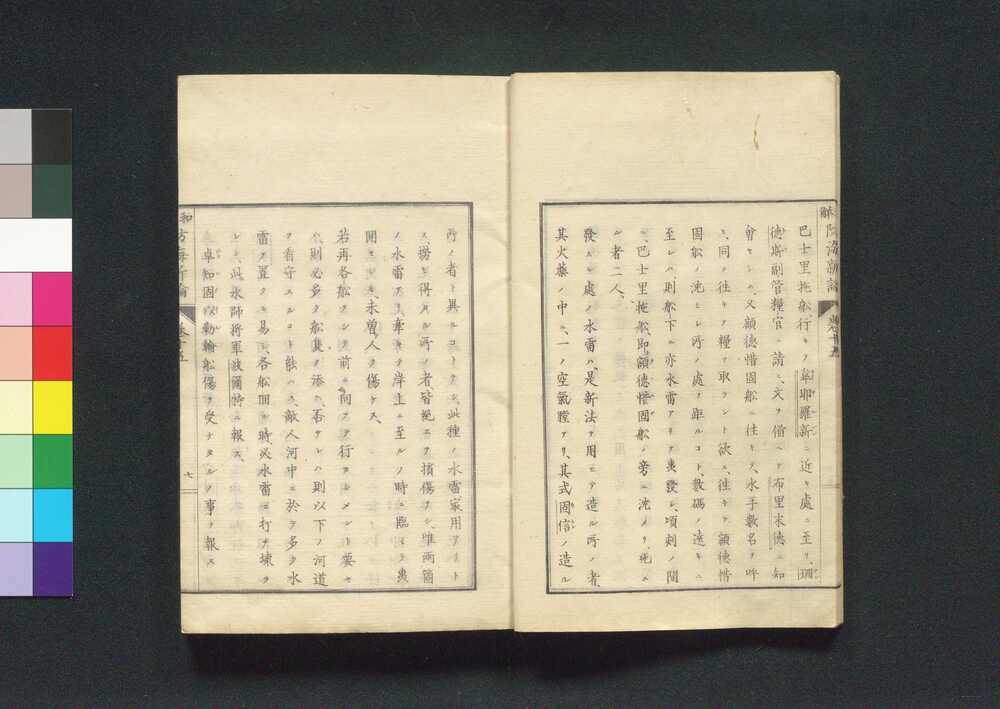 巴士里拖船、行キテ皐耶羅新ニ近キ處ニ至リ、珊
德斯副管糧官ニ請ヒ、文ヲ借ヘテ布里米德ニ知
會セシム、又額德惜固船ニ往キテ、水手數名ヲ呼
ヒ、同ク往キテ糧ヲ取ラント欲ス、往キテ額德惜
固船ノ沈ヒシ所ノ處ヲ距ルコト、數碼ノ遠キニ
至レハ、則船下ニ亦水雷アリテ轟發シ、頃刻ノ間
ニ、巴士里拖船、即額德惜固船ノ旁ニ沈メリ、死ス
ル者二人、
發スル處ノ水雷ハ、是新法ヲ用ヒテ造ル所ノ者、
其火藥ノ中ニ、一ノ空氣膛アリ、其式固信ノ造ル
所ノ者ト異ルコトナシ、此種ノ水雷家用フルト
ス、撈ヒ得タル所ノ者、皆絶エテ損傷ナシ、惟兩箇
ノ水雷アリ、牽キテ岸上ニ至ルノ時ニ臨ミテ轟
開スレトモ、未曽人ヲ傷ケス、
若再各船ヲシテ前ニ向フテ行カシメント要セ
ハ、則必多ク船隻ヲ添ヘ、否サレハ則以下ノ河道
ヲ看守スルコト能ハス、敵人河中ニ於テ多ク水
雷ヲ置クニ易シ、各船回ル時、必水雷ニ打チ壊ラ
レン、此水師将軍波爾特ニ報ス、
卓知固以勒輪船傷ヲ受ケタルノ事ヲ報ス
防海新論
卷十五
七